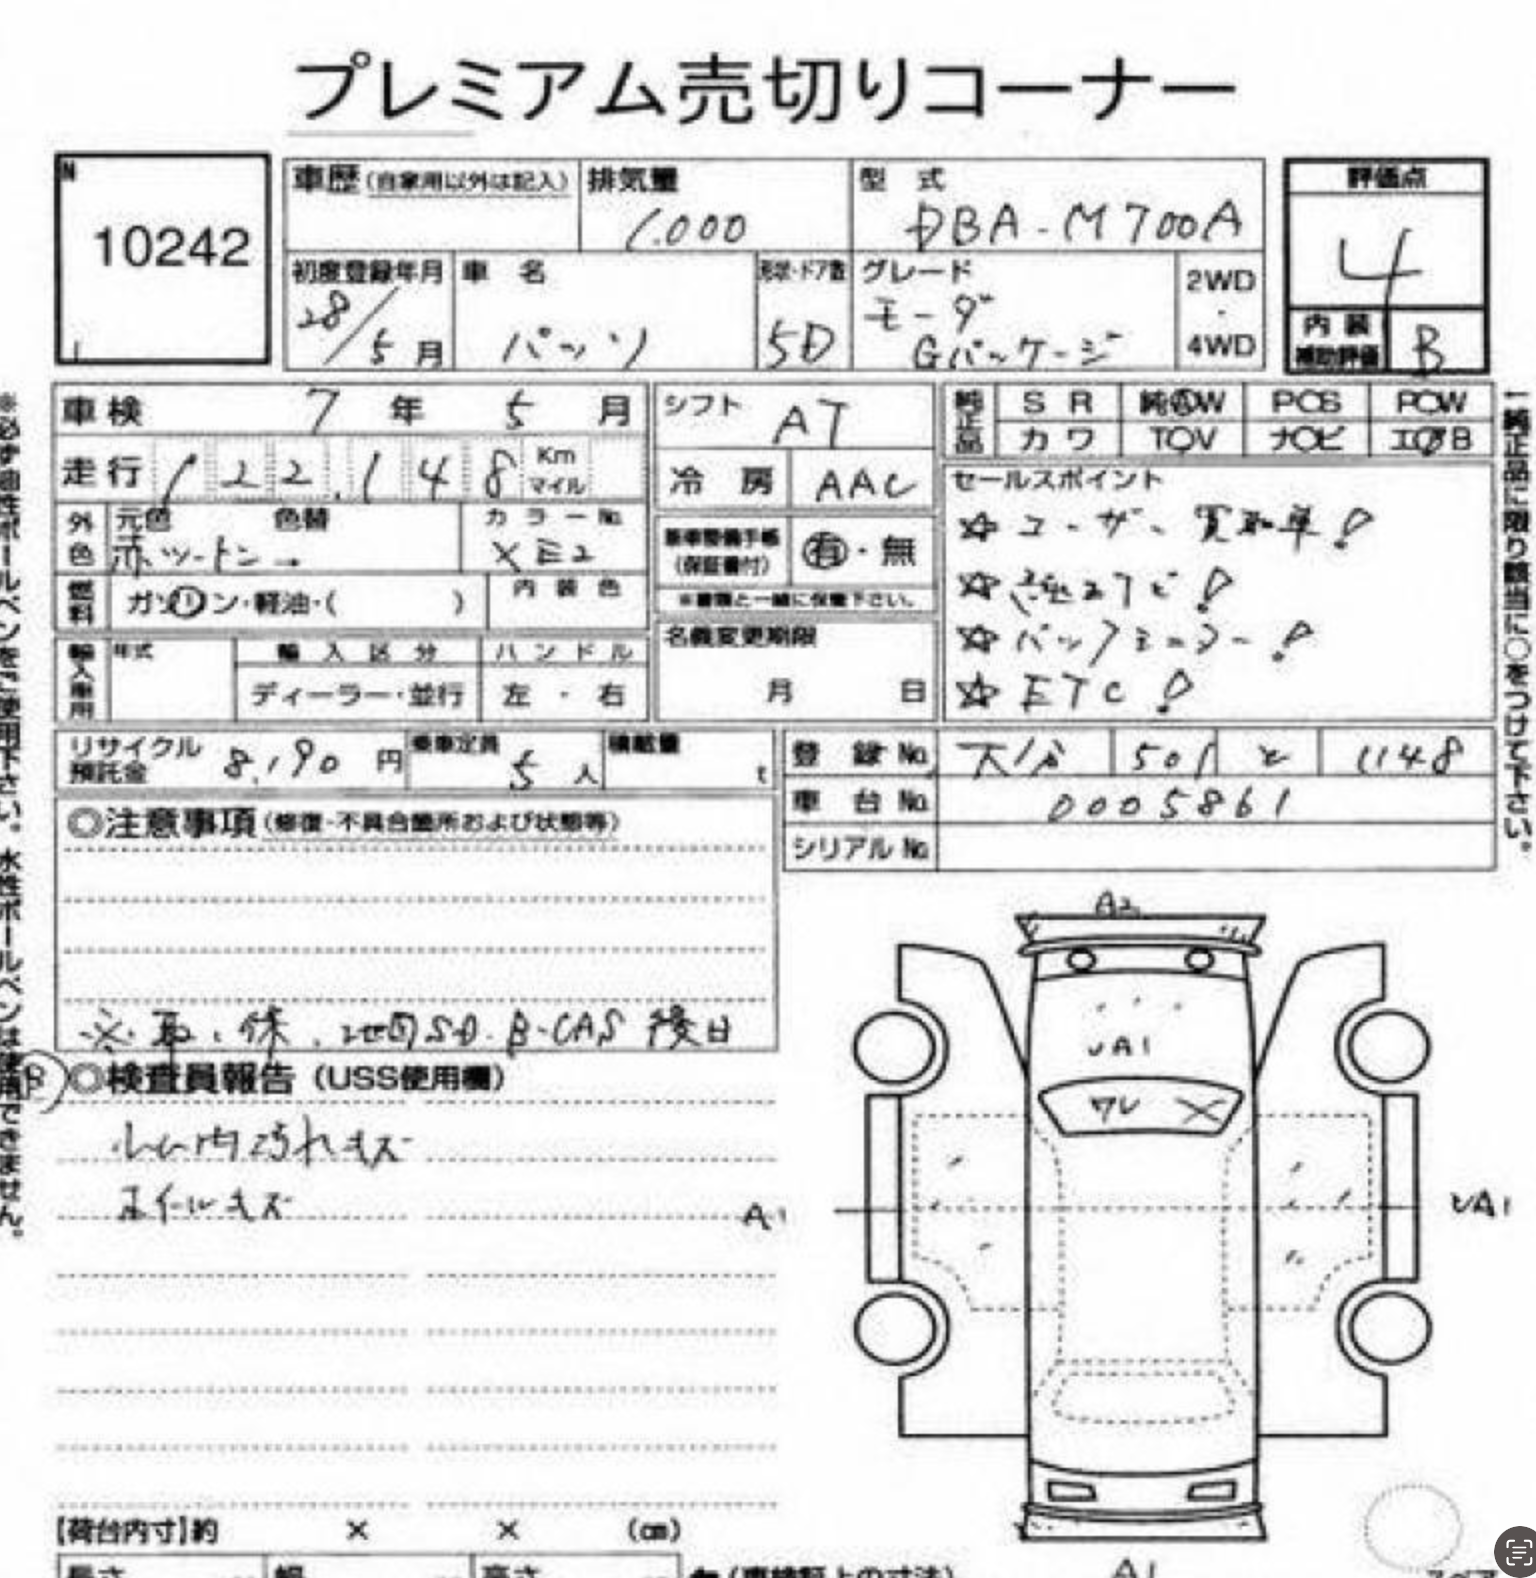 プレミアム売切りコーナー
10242
車歴(自家用以外は記入)
排気量
1.000
型 式
DBA-M700A
評価点
4
初度登録年月
28/5月
車 名
パッソ
形状・ドア数
5D
グレード
モーダ
Gパッケージ
2WD
・
4WD
内装
補助評価
B
車検 7年 5月
シフト AT
純正品
SR 純AW PS PW
カワ TV ナビ エアB
走行 122,148 Km マイル
冷房 AAC
セールスポイント
☆ユーザー買取車!
☆地デジ!
☆バックモニター!
☆ETC!
外色
元色 色替
赤ツートン→
カラーNo.
XE2
新車整備手帳
(保証書付)
有・無
※書類と一緒に保管下さい。
燃料
ガソリン・軽油・( )
内装色
名義変更期限
月 日
輸入車用
年式
輸入区分
ディーラー・並行
ハンドル
左・右
リサイクル
預託金
8,190円
乗車定員
5人
積載量
t
登録No. 大分 501 と 1148
車台No. 0005861
シリアルNo.
◎注意事項(修復・不具合箇所および状態等)
※取、保、地図SD.B-CAS後日
◎検査員報告(USS使用欄)
内汚れキズ
ホイールキズ
A2
UA1
ワレ ×
A1
UA1
A1
【荷台内寸】約 × × (cm)
長さ
幅
高さ
(車検証上の寸法)
スペア
※必ず油性ボールペンをご使用下さい。水性ボールペンは使用できません。
純正品に限り該当に○をつけて下さい。